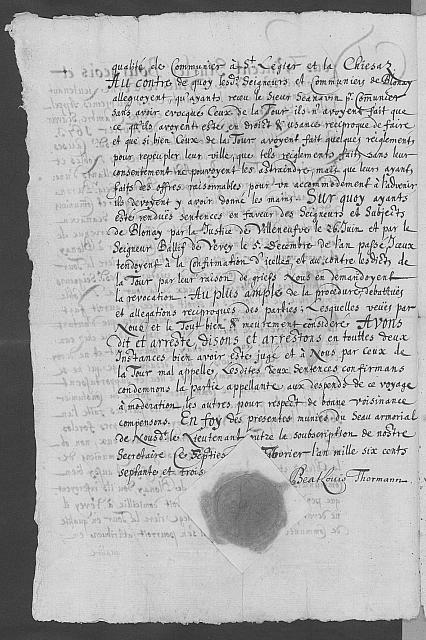 qualité de Communier à St. Legier et la Chiesaz.
Au contre de quoy lesd. Seigneurs et Communiers de Blonay
alleguoyent, qu'ayants receu le Sieur Jeanavin p. Comunier
sans avoir evoqué Ceux de la Tour ils n'avoyent fait que
ce qu'ils avoyent esté en droict & usance reciproque de faire
et que si bien Ceux de la Tour avoyent fait quelques reiglements
pour repeupler leur ville, que tels reiglements faits sans leur
consentement ne pouvoyent les adtraindre, mais que leurs ayants
faits des offres raisonnables pour un accommodement à l'advenir
ils devoyent y avoir donné les mains. Sur quoy ayants
estés rendues sentences en faveur des Seigneurs et Subjects
de Blonay par la Justice de Villeneufve le 26 Juin et par le
Seigneur Ballif de Vevey le 5e Decembre de l'an passé, Iceux
tendoyent à la Confirmation d'icelles, et au contre lesdits de
la Tour par leur raison de griefs Nous en demandoyent
la revocation. Au plus ample de la procedure, debattues
et allegations reciproques des parties; Lesquelles veues par
Nous et le Tout bien & meurement consideré Avons
dit et arresté disons et arrestons en touttes deux
Instances bien avoir esté jugé et à Nous par ceux de
la Tour mal appellé. Lesdites deux Sentences confirmans
condemnons la partie appellante aux despends de ce voyage
à moderation les autres pour respect de bonne voisinance
compensons. En foy des presentes munies du Seau armorial
de Nousd. le Lieutenant outre la soubscription de nostre
Secretaire Ce Septies vrier l'an mille six cents
septante et trois
Beat Louis Thormann.